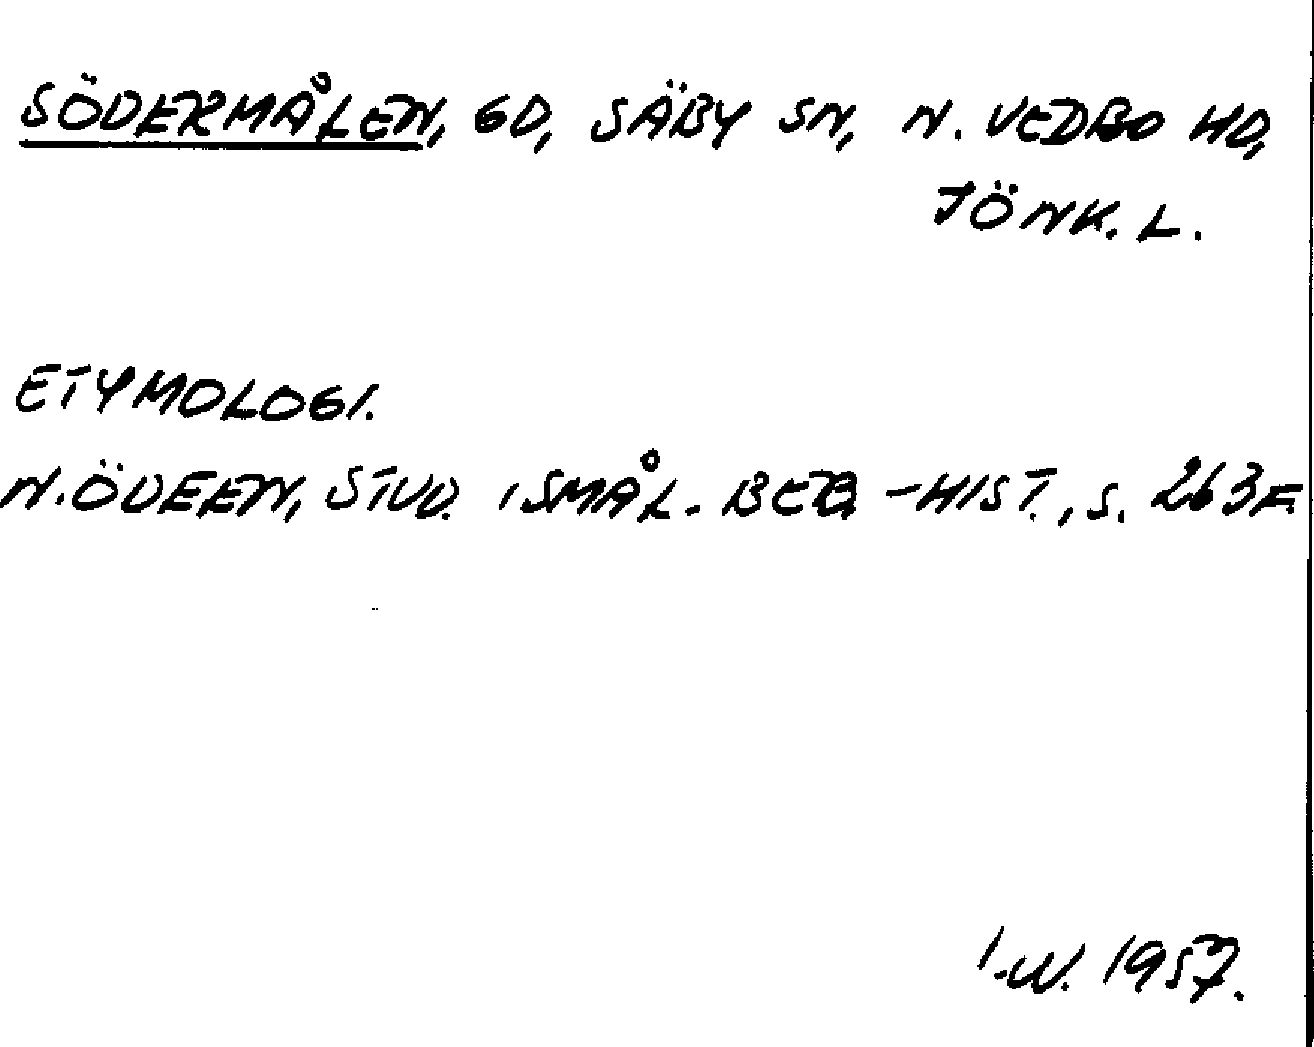 SÖDERMÅLEN, GD, SÄBY SN, N. VEDBO HD,
JÖNK. L.
ETYMOLOGI.
N. ÖDEEN, STUD. I SMÅL. BEB.-HIST., S. 263F.
I.W. 1957.